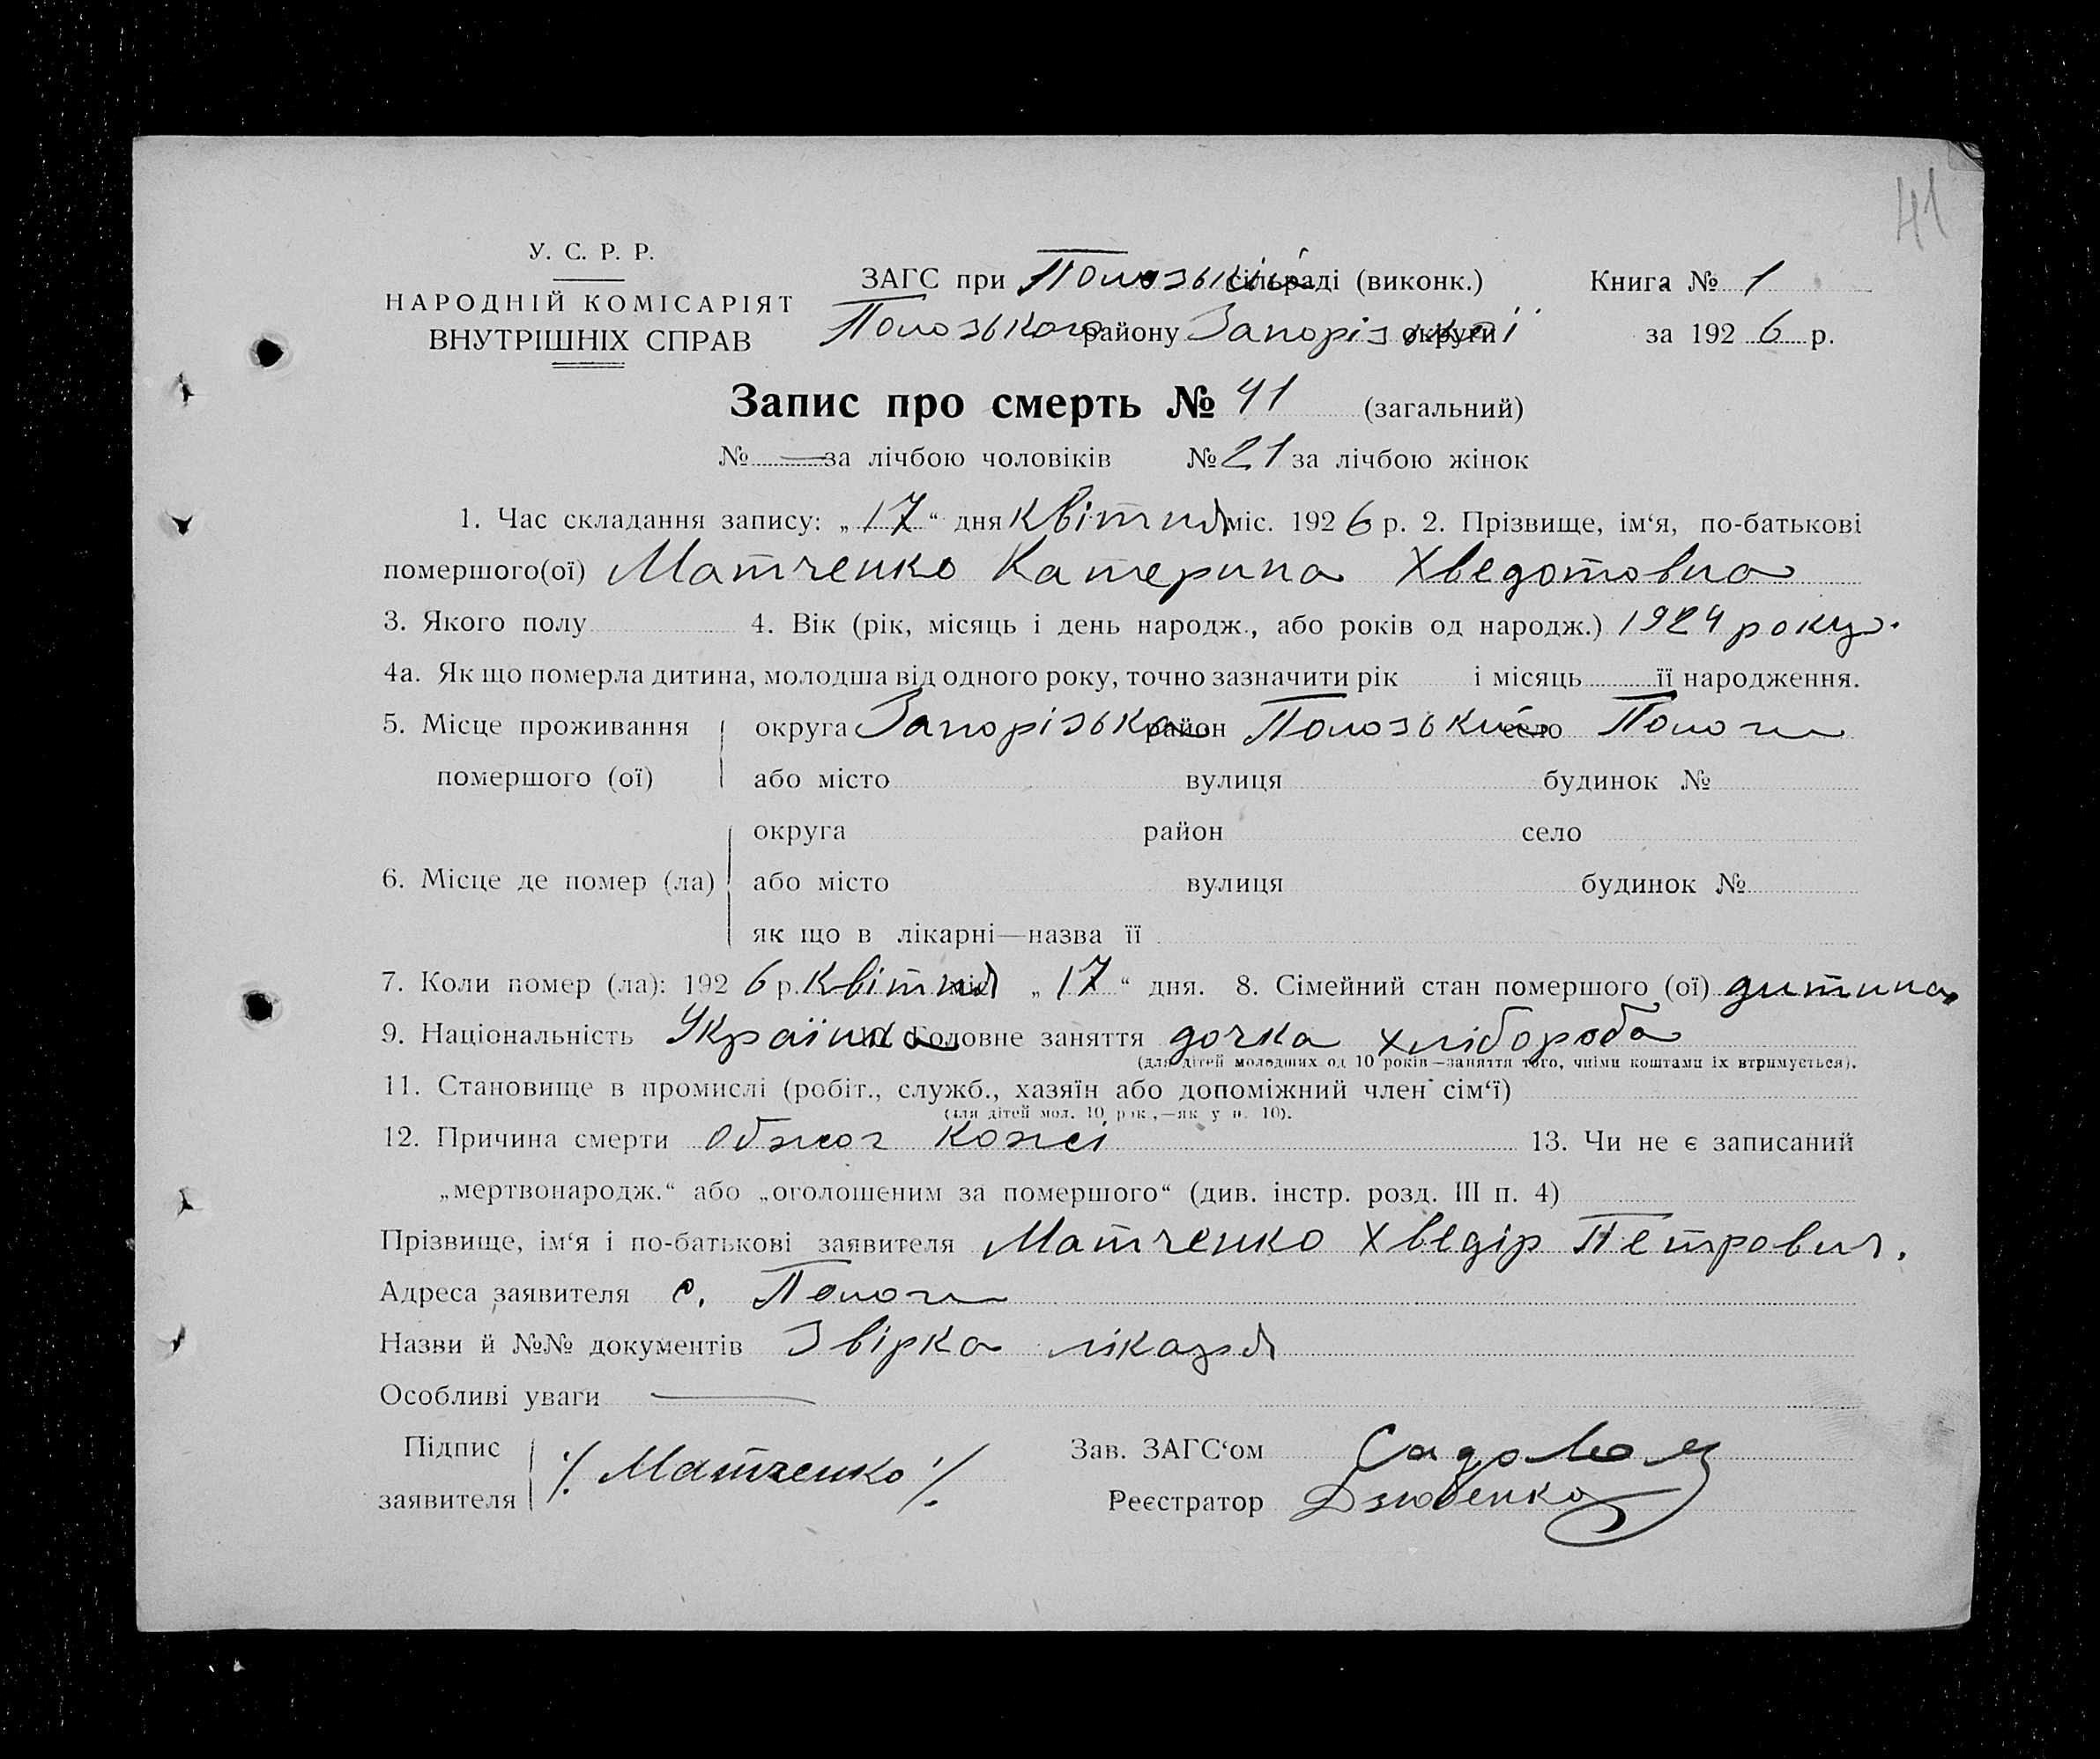 41
У. С. Р. Р.
НАРОДНІЙ КОМІСАРІЯТ
ВНУТРІШНІХ СПРАВ
ЗАГС при Полозькій сільраді (виконк.) Книга № 1
Полозького району Запорізької округи за 1926 р.
Запис про смерть № 41 (загальний)
№ — за лічбою чоловіків № 21 за лічбою жінок
1. Час складання запису: „17“ дня квітня міс. 1926 р. 2. Прізвище, ім‘я, по-батькові
помершого(ої) Матченко Катерина Хведотовна
3. Якого полу 4. Вік (рік, місяць і день народж., або років од народж.) 1924 року.
4а. Як що померла дитина, молодша від одного року, точно зазначити рік і місяць її народження.
5. Місце проживання округа Запорізька район Полозький село Пологи
помершого (ої) або місто вулиця будинок №
округа район село
6. Місце де помер (ла) або місто вулиця будинок №
як що в лікарні—назва її
7. Коли помер (ла): 1926 р. квітня міс. „17“ дня. 8. Сімейний стан помершого (ої) дитина
9. Національність Українка 10. Головне заняття дочка хлібороба
(для дітей молодших од 10 років—заняття того, чиїми коштами їх втримується).
11. Становище в промислі (робіт., служб., хазяїн або допоміжний член сім‘ї)
(для дітей мол. 10 рок.,—як у п. 10).
12. Причина смерти Обжог кожі 13. Чи не є записаний
„мертвонародж.“ або „оголошеним за помершого“ (див. інстр. розд. III п. 4)
Прізвище, ім‘я і по-батькові заявителя Матченко Хведір Петрович.
Адреса заявителя с. Пологи
Назви й №№ документів Звірка лікаря
Особливі уваги —
Підпис Зав. ЗАГС‘ом
заявителя /Матченко/ Реєстратор Дзюбенко